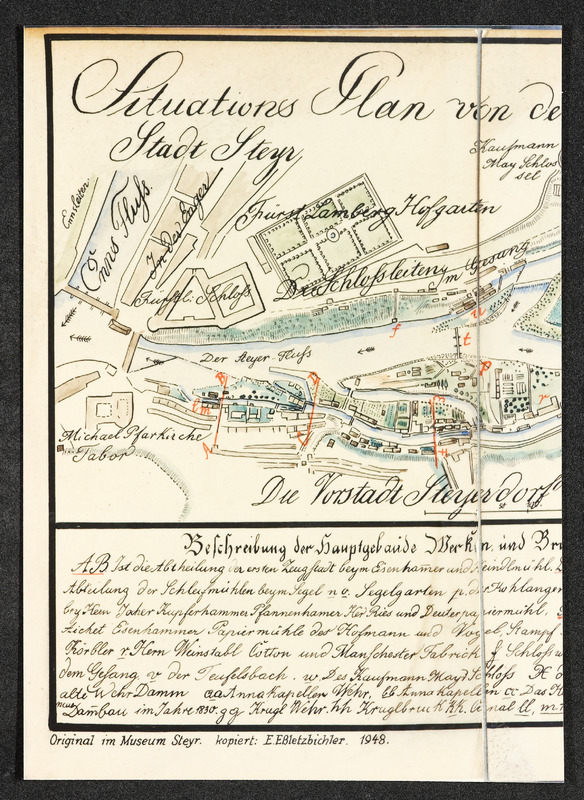 Situations Plan von de
Stadt Steyr
Kaufmann
May Schlos
sel
Ennsleiten
Enns Fluss.
In der Enge
Fürst Lamberg Hofgarten
Fürstl: Schloss
Die Schlossleiten
Im Gesang
Der Steyer-Fluss
f
u
t
p
r
B
D
lm
A
C
Michael Pfarkirche
Tabor
Die Vorstadt Steyerdorf
50
Beschreibung der Hauptgebäude Werken und Br
AB Ist die Abtheilung der ersten Zeugstadt beym Eisenhamer und
Abteilung der Schleifmühlen beym Segel n o. Segelgarten p. der Kohlanger
bey Hern Kupferhammer Pfannenhamer Hör Ries und Deuter papiermühl.
zichet Eisenhammer Papiermühle des Hofmann und Vogel, Stampf
Körbler r. Hern Weinstabl Citton und Manschester Fabrick f Schloss
dem Gesang v der Teufelsbach. w. Des Kaufmann May Schloss
alte Wehr Damm aa Anna kapellen Wehr, bb Anna kapellen cc Das
neue
Dambau im Jahre 1830. gg Krugl Wehr. hh Kruglbruck kk. ll, m
Original im Museum Steyr. kopiert: E. Eßletzbichler. 1948.